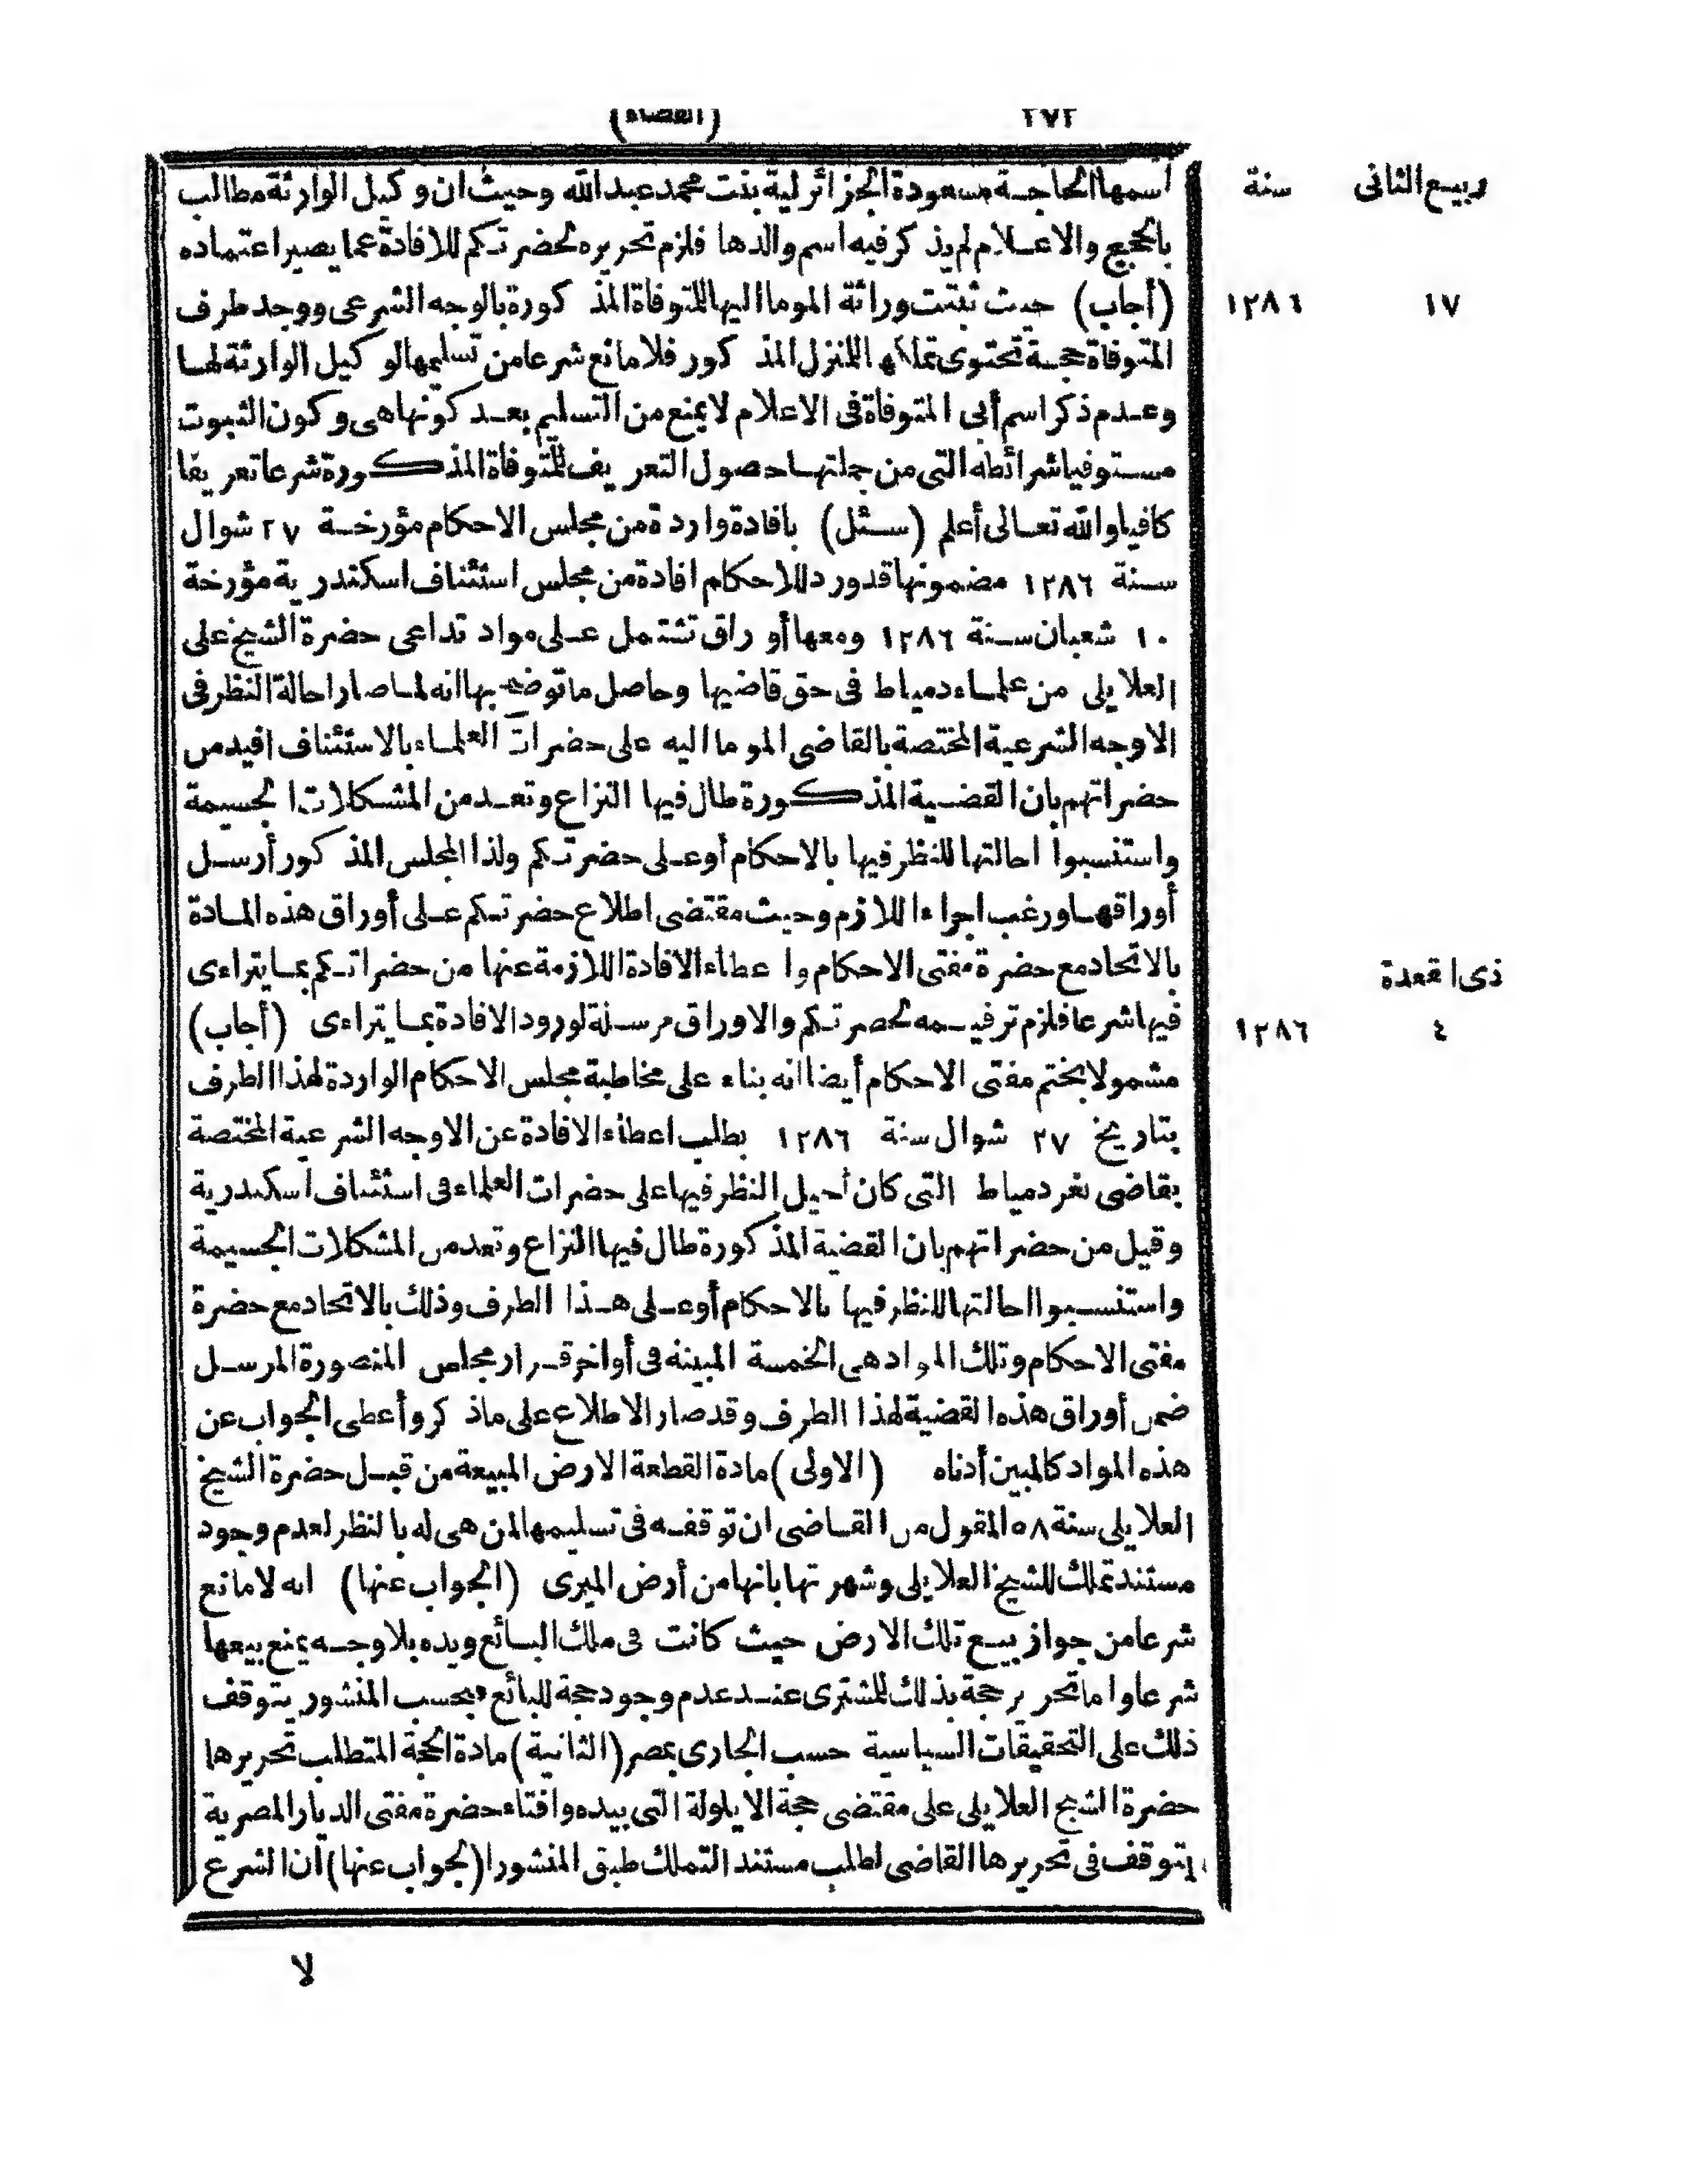 ٢٧٢ (القضاء)
ربيع الثانى سنة
اسمها الحاجة مسعودة الجزائرلية بنت محمد عبد الله وحيث ان وكيل الوارثة مطالب
بالحجج والاعلام لم يذكر فيه اسم والدها فلزم تحريره لحضرتكم للافادة عما يصير اعتماده
١٧ ١٢٨٦
(أجاب) حيث ثبتت وراثة الموما اليها للمتوفاة المذكورة بالوجه الشرعى ووجد طرف
المتوفاة حجة تحتوى تملكها للمنزل المذكور فلا مانع شرعا من تسليمها لوكيل الوارثة لها
وعدم ذكر اسم أبى المتوفاة فى الاعلام لا يمنع من التسليم بعد كونها هى وكون الثبوت
مستوفيا شرائطه التى من جملتها حصول التعريف للمتوفاة المذكورة شرعا تعريفا
كافيا والله تعالى أعلم (سئل) بافادة واردة من مجلس الاحكام مؤرخة ٢٧ شوال
سنة ١٢٨٦ مضمونها قد ورد للاحكام افادة من مجلس استئناف اسكندرية مؤرخة
١٠ شعبان سنة ١٢٨٦ ومعها أوراق تشتمل على مواد تداعى حضرة الشيخ على
العلايلى من علماء دمياط فى حق قاضيها وحاصل ما توضح بها انه لما صار احالة النظر فى
الاوجه الشرعية المختصة بالقاضى الموما اليه على حضرات العلماء بالاستئناف افيد من
حضراتهم بان القضية المذكورة طال فيها النزاع وتعد من المشكلات الجسيمة
واستنسبوا احالتها للنظر فيها بالاحكام أو على حضرتكم ولذا المجلس المذكور أرسل
أوراقها ورغب اجراء اللازم وحيث مقتضى اطلاع حضرتكم على أوراق هذه المادة
بالاتحاد مع حضرة مفتى الاحكام واعطاء الافادة اللازمة عنها من حضراتكم بما يتراءى
ذى القعدة
فيها شرعا فلزم ترقيمه لحضرتكم والاوراق مرسلة لورود الافادة بما يتراءى (أجاب)
٤ ١٢٨٦
مشمولا بختم مفتى الاحكام أيضا انه بناء على مخاطبة مجلس الاحكام الواردة لهذا الطرف
بتاريخ ٢٧ شوال سنة ١٢٨٦ بطلب اعطاء الافادة عن الاوجه الشرعية المختصة
بقاضى ثغر دمياط التى كان أحيل النظر فيها على حضرات العلماء فى استئناف اسكندرية
وقيل من حضراتهم بان القضية المذكورة طال فيها النزاع وتعد من المشكلات الجسيمة
واستنسبوا احالتها للنظر فيها بالاحكام أو على هذا الطرف وذلك بالاتحاد مع حضرة
مفتى الاحكام وتلك المواد هى الخمسة المبينة فى أواخر قرار مجلس المنصورة المرسل
ضمن أوراق هذه القضية لهذا الطرف وقد صار الاطلاع على ما ذكر وأعطى الجواب عن
هذه المواد كالمبين أدناه (الاولى) مادة القطعة الارض المبيعة من قبل حضرة الشيخ
العلايلى سنة ٥٨ المقول من القاضى ان توقفه فى تسليمها لمن هى له بالنظر لعدم وجود
مستند تملك للشيخ العلايلى وشهرتها بانها من أرض الميرى (الجواب عنها) انه لا مانع
شرعا من جواز بيع تلك الارض حيث كانت فى ملك البائع ويده بلا وجه يمنع بيعها
شرعا واما تحرير حجة بذلك للمشترى عند عدم وجود حجة للبائع فبحسب المنشور يتوقف
ذلك على التحقيقات السياسية حسب الجارى بمصر (الثانية) مادة الحجة المتطلب تحريرها
حضرة الشيخ العلايلى على مقتضى حجة الايلولة التى بيده وافتاء حضرة مفتى الديار المصرية
يتوقف فى تحريرها القاضى لطلب مستند التملك طبق المنشور (الجواب عنها) ان الشرع
لا